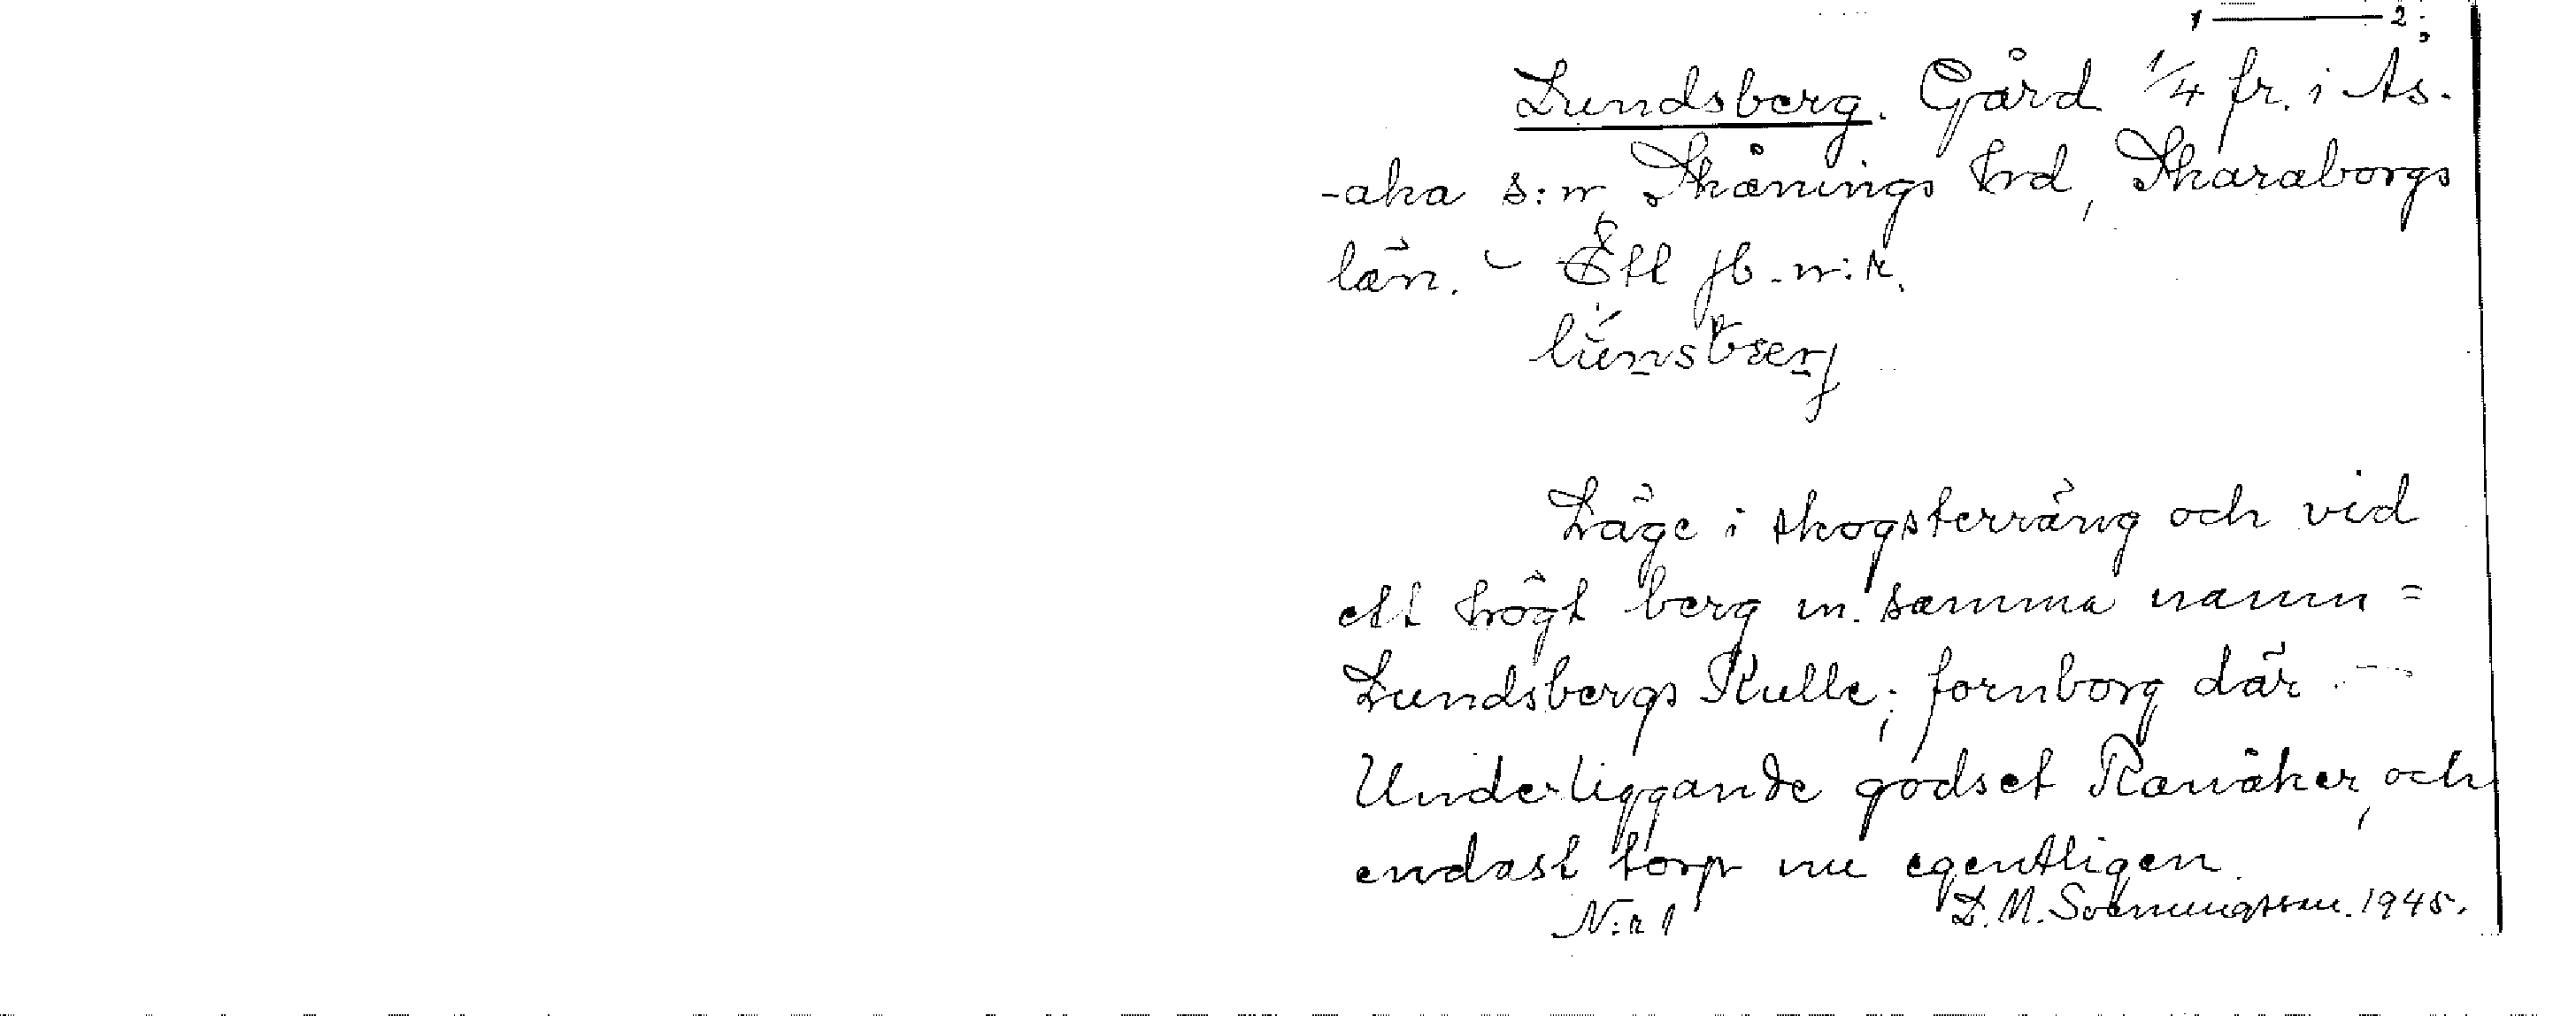 1 — 2
Lundsberg. Gård 1/4 fr. i As-
-aka s:n, Skånings hrd, Skaraborgs
län. – Ett jb-n:r.
lúnsbærj
Läge i skogsterräng och vid
ett högt berg m. samma namn =
Lundsbergs Kulle; fornborg där. –
Underliggande godset Ranåker, och
endast torp nu egentligen.
N:r 1 D. M. 1945.